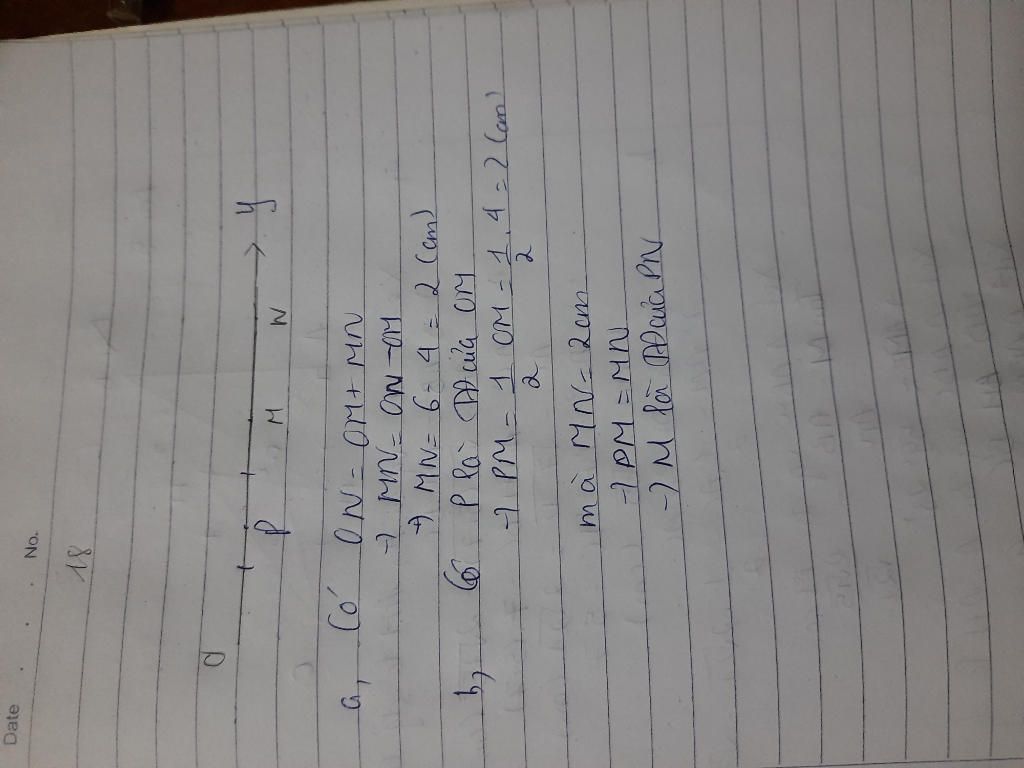 Date . . . No.
18
O P M N y
a, Có ON = OM + MN
→ MN = ON - OM
→ MN = 6 - 4 = 2 (cm)
b, Có P là TĐ của OM
→ PM = 1/2 OM = 1/2 . 4 = 2 (cm)
mà MN = 2cm
→ PM = MN
→ M là TĐ của PN